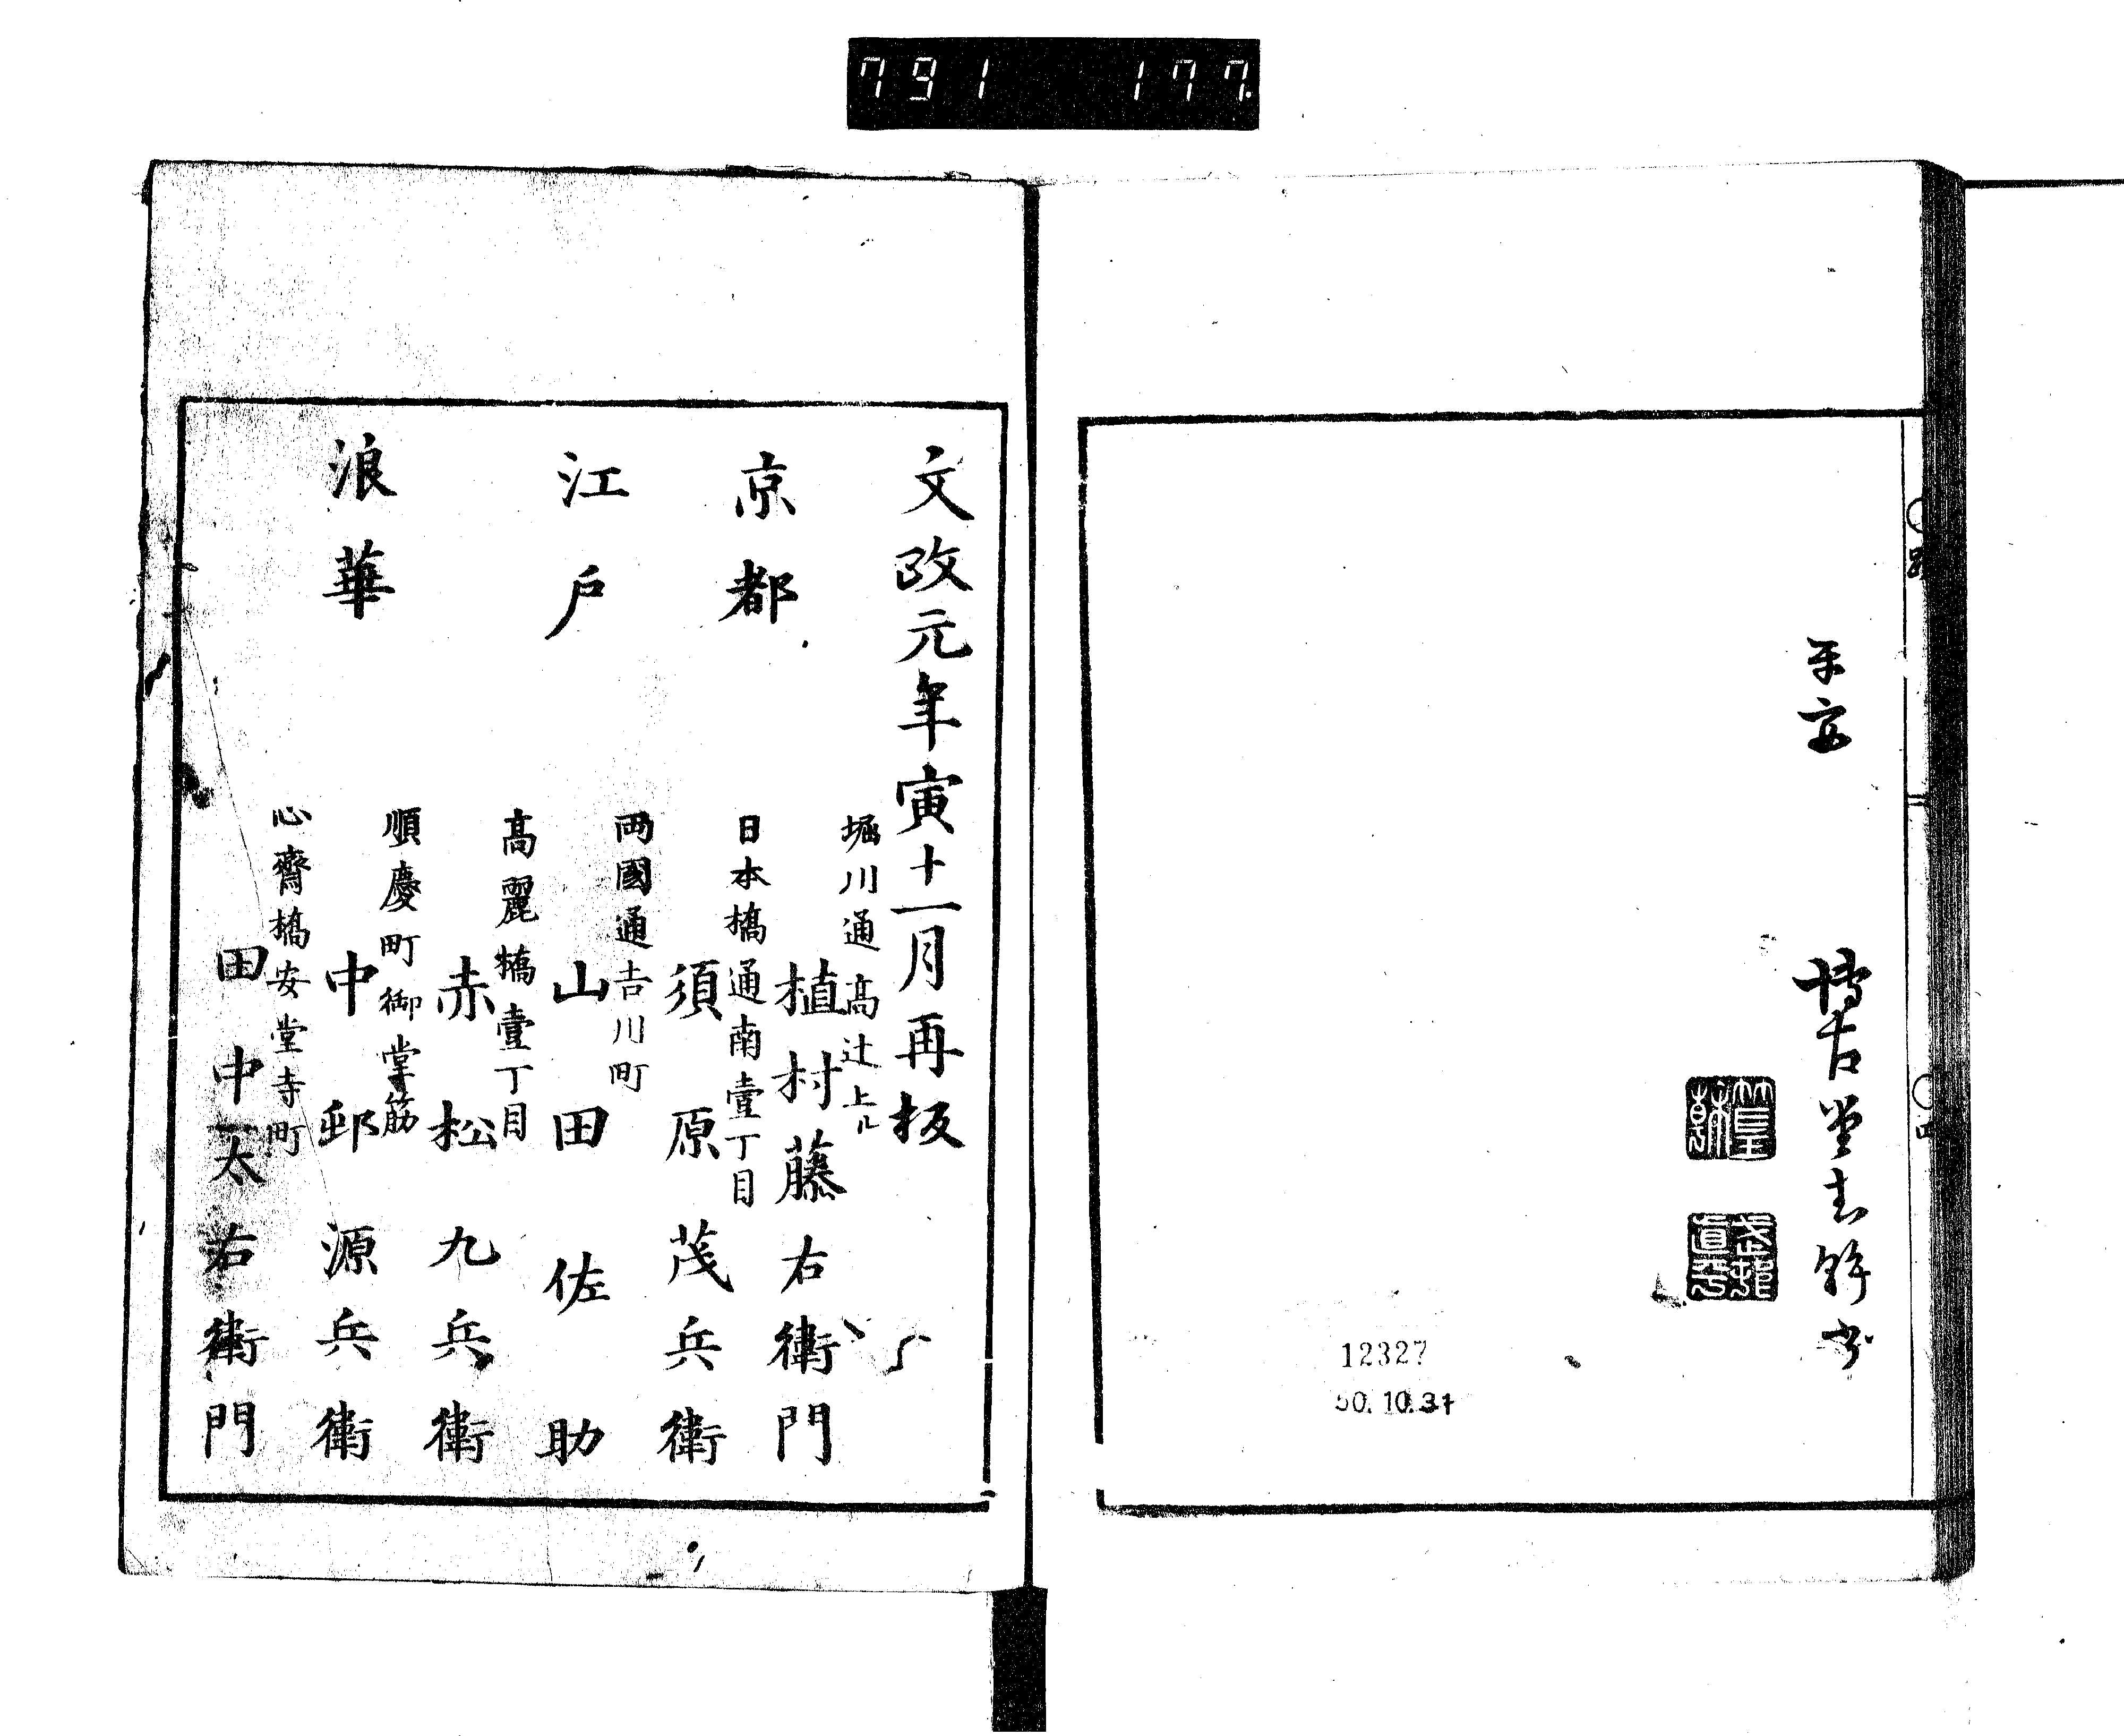 791 177
平安 博古堂
12327
50.10.31
文政元年寅十一月再板
京都
堀川通高辻上ル
植村藤右衛門
江戸
日本橋通南壹丁目
須原茂兵衛
両國通吉川町
山田佐助
浪華
高麗橋壹丁目
赤松九兵衛
順慶町御堂筋
中邨源兵衛
心齋橋安堂寺町
田中太右衛門